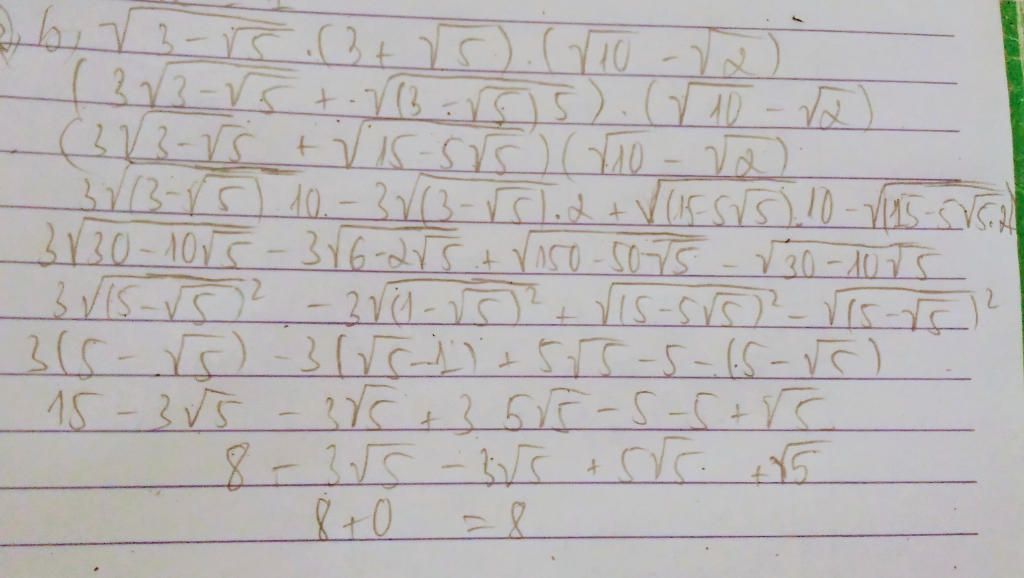 b, √(3-√5) . (3 + √5) . (√10 - √2)
(3√(3-√5) + √((3-√5)5)) . (√10 - √2)
(3√(3-√5) + √(15-5√5)) (√10 - √2)
3√((3-√5) 10) - 3√((3-√5).2) + √((15-5√5).10) - √((15-5√5.2)
3√(30-10√5) - 3√(6-2√5) + √(150-50√5) - √(30-10√5)
3√((5-√5)²) - 3√((1-√5)²) + √((5-5√5)²) - √((5-√5)²)
3(5-√5) - 3(√5-1) + 5√5-5-(5-√5)
15 - 3√5 - 3√5 + 3 5√5 - 5 - 5 + √5
8 - 3√5 - 3√5 + 5√5 + √5
8+0 = 8